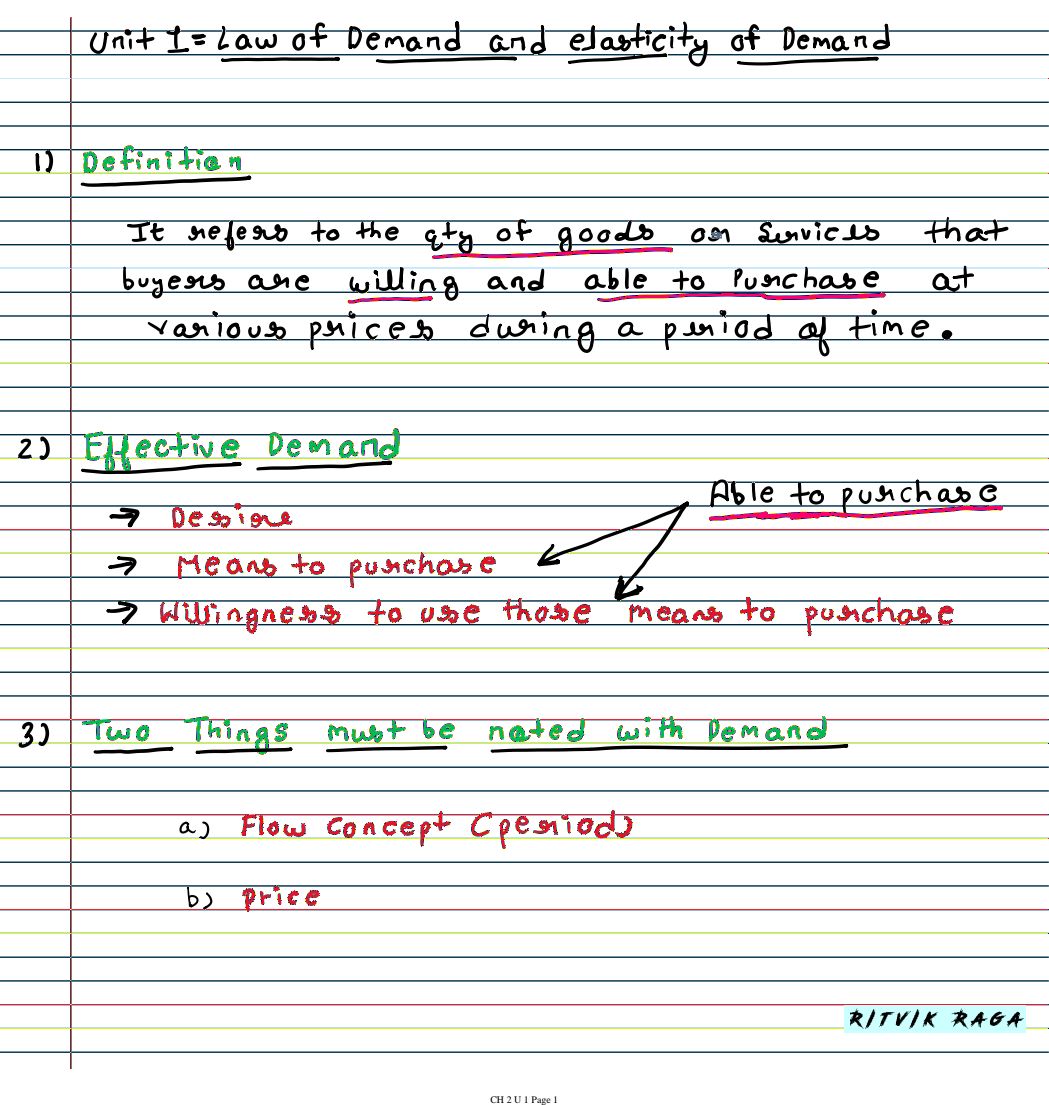 Unit 1 = Law of Demand and elasticity of Demand
1) Definition
It refers to the qty of goods or services that
buyers are willing and able to Purchase at
various prices during a period of time.
2) Effective Demand
Able to purchase
→ Desire
→ Means to purchase
→ Willingness to use those means to purchase
3) Two Things must be noted with Demand
a) Flow Concept (period)
b) price
RITVIK RAGA
CH 2 U 1 Page 1